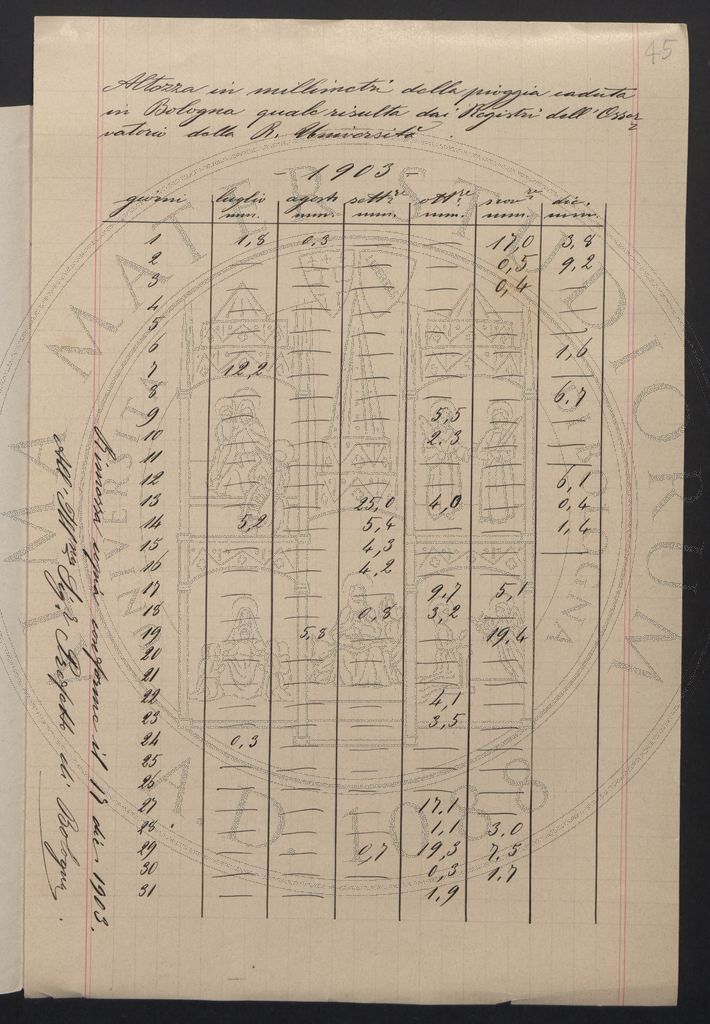 45
Altezza in millimetri della pioggia caduta
in Bologna quale risulta dai Registri dell'Osser=
vatorio della R. Università.
- 1903 -
giorni luglio agosto sett.re ott.re nov.re dic.
mm. mm. mm. mm. mm. mm.
1 1,8 0,3 — — 17,0 3,8
2 — — — — 0,5 9,2
3 — — — — 0,4 —
4 — — — — — —
5 — — — — — —
6 — — — — — 1,6
7 12,2 — — — — —
8 — — — — — 6,7
9 — — — 5,5 — —
10 — — — 2,3 — —
11 — — — — — —
12 — — — — — 6,1
13 — — 25,0 4,0 — 0,4
14 5,2 — 5,4 — — 1,4
15 — — 4,3 — — —
16 — — 4,2 — —
17 — — — 9,7 5,1
18 — — 0,8 3,2 —
19 — 5,8 — — 19,4
20 — — — — —
21 — — — — —
22 — — — 4,1 —
23 — — — 3,5 —
24 0,3 — — — —
25 — — — — —
26 — — — — —
27 — — — 17,1 —
28 — — — 1,1 3,0
29 — — 0,7 19,3 7,5
30 — — — 0,3 1,7
31 — — 1,9
Rimossa copia conforme il 17 dic. 1903.
All' Ill.mo Sig.r Prefetto di Bologna.
ALMA MATER STUDIORUM
UNIVERSITÀ DI BOLOGNA
A.D. 1088